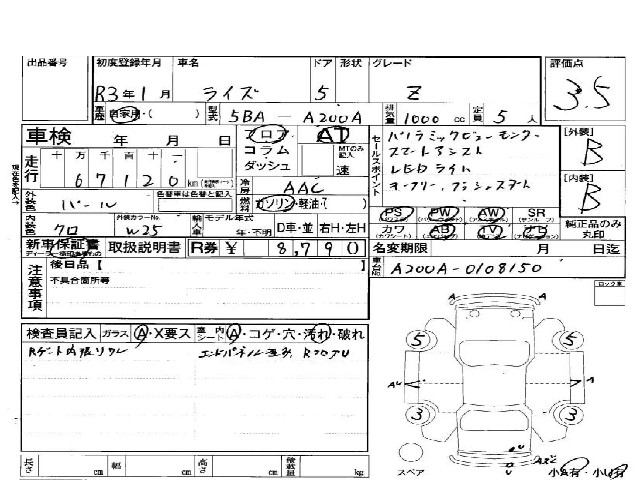 出品番号 初度登録年月 車名 ドア 形状 グレード 評価点
R3年1月 ライズ 5 Z 3.5
車歴 自家用・( ) 型式 5BA-A200A 排気量 1000 cc 定員 5人
車検 年 月 日 フロア AT セールスポイント パノラミックビューモニター 【外装】
コラム MTのみ記入 スマートアシスト B
走行 十 万 千 百 十 一 ダッシュ 速 LED
67120 km 冷房 AAC 【内装】
外装色 パール 色替車は色替と記入 燃料 ガソリン・軽油・( ) B
内装色 クロ 外装カラーNo. W25 輸入車 モデル年式 年・不明 D車・並 右H・左H
PS PW AW SR (サンルーフ) 純正品のみ丸印
カワ (カワシート) AB (エアバッグ) TV ナビ
新車保証書 取扱説明書 R券 ¥ 8,790 名変期限 月 日迄
注意事項 後日品【 車台No. A200A-0108150
不具合箇所等 ロック車
検査員記入 ガラス A・X要ス 室内シート A・コゲ・穴・汚れ・破れ
Rゲート内張リワレ エンドパネル歪み
5 5
A A
AU A
3 3
U
U
長さ cm 幅 cm 高さ cm 積載量 kg スペア 小A有・小U有